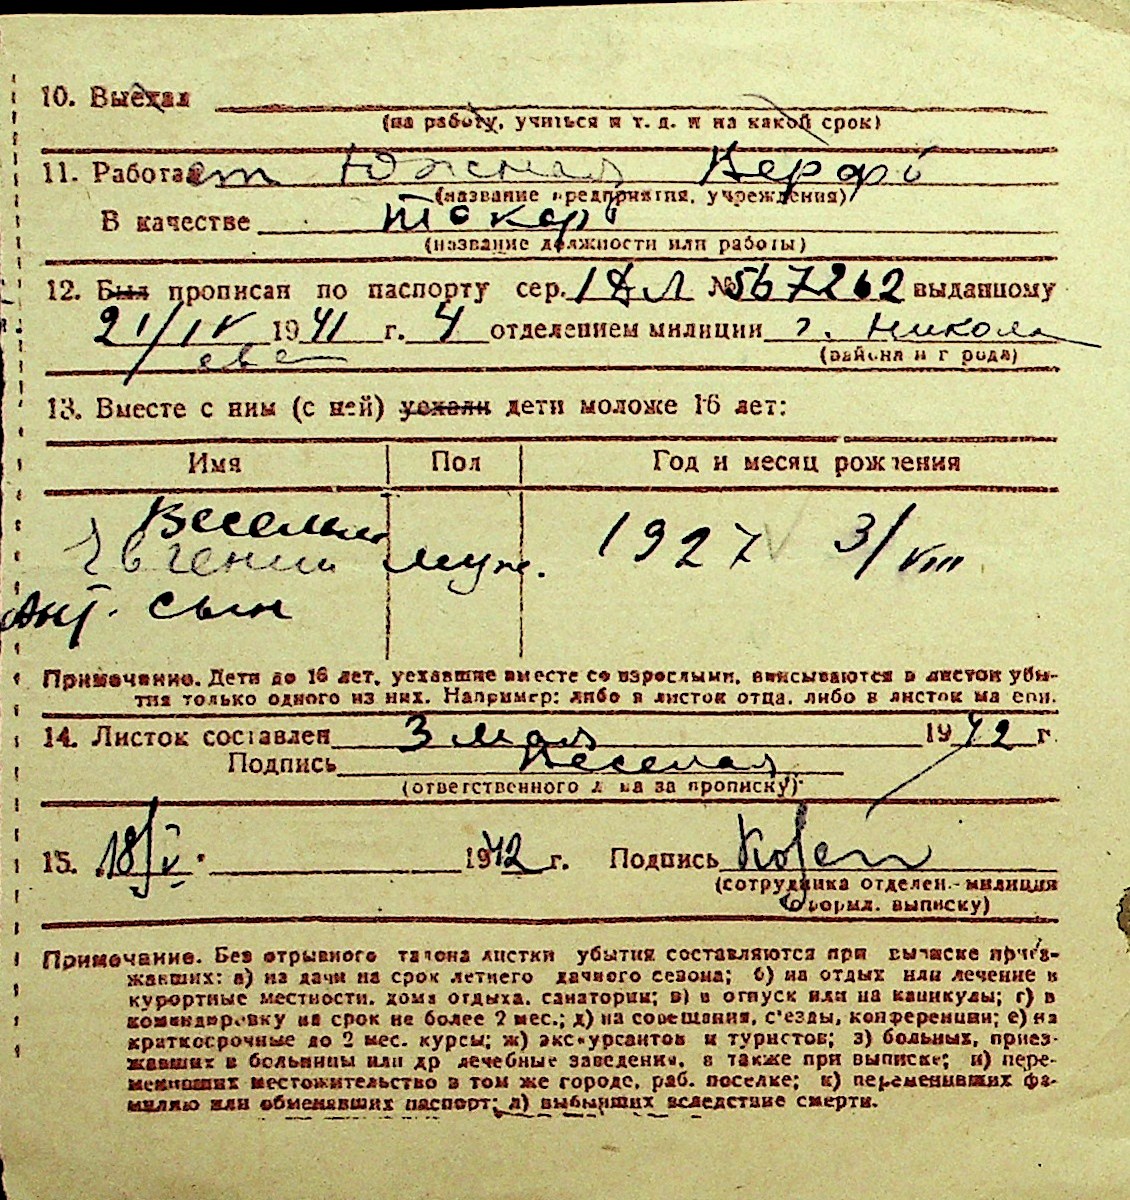 10. Выехал
(на работу, учиться и т. д. и на какой срок)
11. Работает Южная Верфь
(название предприятия, учреждения)
В качестве токарь
(название должности или работы)
12. Был прописан по паспорту сер. № 567262 выданному
21/IV 1941 г. 4 отделением милиции г. Никола
ева
(района и города)
13. Вместе с ним (с ней) уехали дети моложе 16 лет:
Имя Пол Год и месяц рождения
Веселый
Евгений муж. 1927 3/VIII
Ант. сын
Примечание. Дети до 16 лет, уехавшие вместе со взрослыми, вписываются в листок убы-
тия только одного из них. Например: либо в листок отца, либо в листок матери.
14. Листок составлен 3 мая 1942 г.
Подпись Веселая
(ответственного лица за прописку)
15. 18/V. 1942 г. Подпись
(сотрудника отделен. милиции
оформл. выписку)
Примечание. Без отрывного талона листки убытия составляются при выписке приез-
жавших: а) на дачи на срок летнего дачного сезона; б) на отдых или лечение в
курортные местности, дома отдыха, санатории; в) в отпуск или на каникулы; г) в
командировку на срок не более 2 мес.; д) на совещания, с'езды, конференции; е) на
краткосрочные до 2 мес. курсы; ж) экскурсантов и туристов; з) больных, приез-
жавших в больницы или др лечебные заведения, а также при выписке; и) пере-
менивших местожительство в том же городе, раб. поселке; к) переменивших фа-
милию или обменявших паспорт; л) выбывших вследствие смерти.